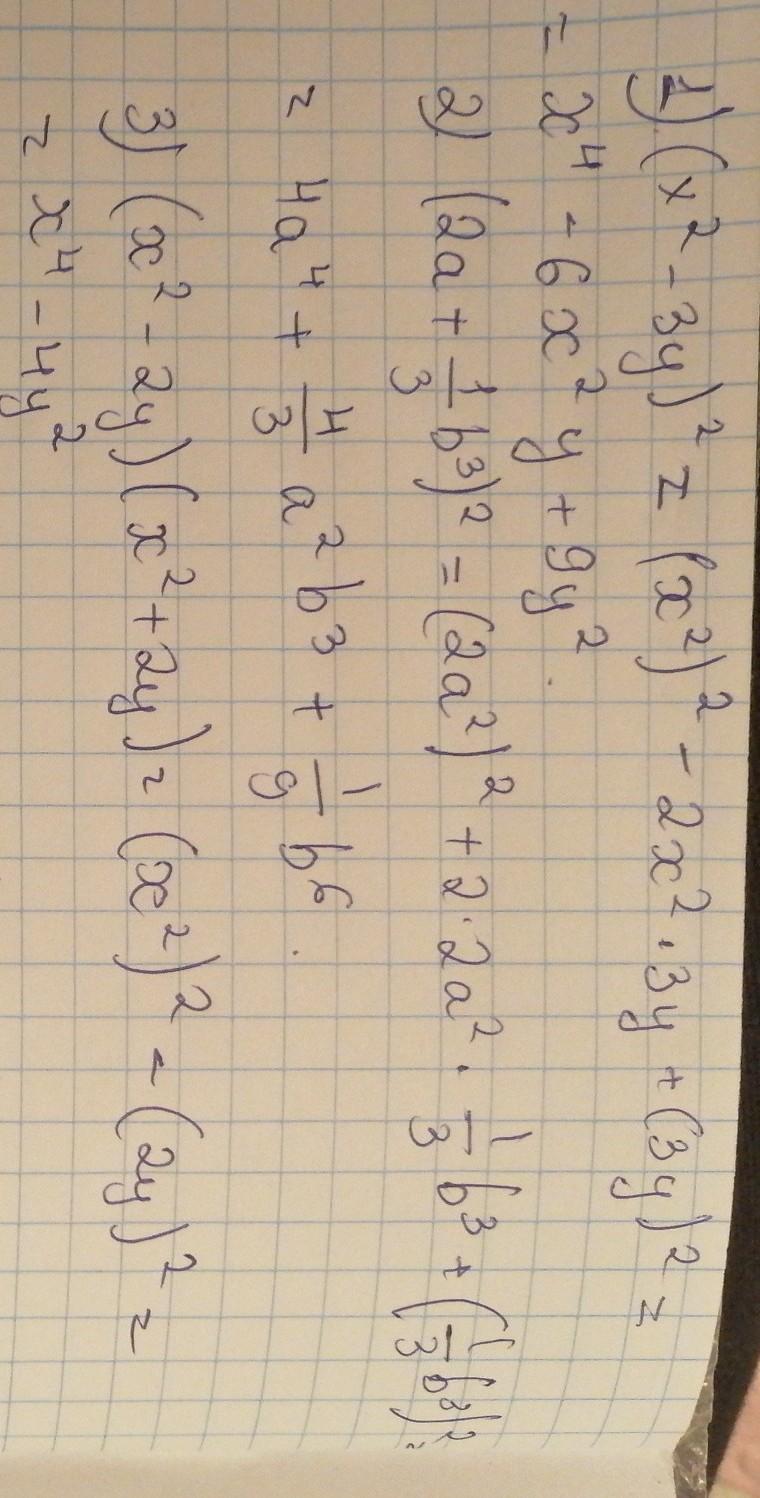 1) (x² - 3y)² = (x²)² - 2x² · 3y + (3y)² =
= x⁴ - 6x²y + 9y².
2) (2a + 1/3 b³)² = (2a²)² + 2 · 2a² · 1/3 b³ + (1/3 b³)² =
= 4a⁴ + 4/3 a²b³ + 1/9 b⁶.
3) (x² - 2y)(x² + 2y) = (x²)² - (2y)² =
= x⁴ - 4y²